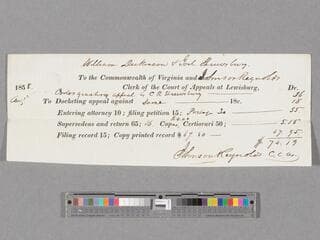 William Dickinson & Joel Shrewsbury,
To the Commonwealth of Virginia and Johnson Reynolds
185 Clerk of the Court of Appeals at Lewisburg, Dr.
Order granting appeal by C R Shrewsbury 36
Aug To Docketing appeal against same 18c. 18
Entering attorney 10; filing petition 15; 30 55
Supersedeas and return 65; Copy Certiorari 50; 5.15
Filing record 15; Copy printed record $67 80 67.95
$ 74.19
Johnson Reynolds C.C.